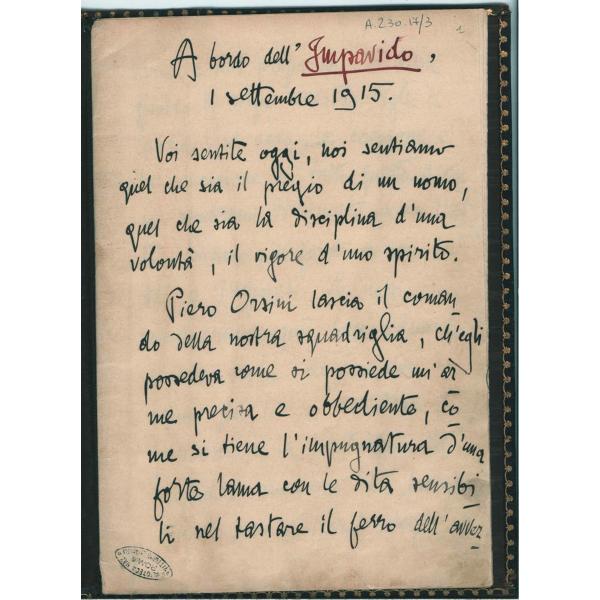 A.230.17/3
1
A bordo dell' Impavido,
1 settembre 1915.
Voi sentite oggi, noi sentiamo
quel che sia il pregio di un uomo,
quel che sia la disciplina d'una
volontà, il vigore d'uno spirito.
Piero Orsini lascia il coman
do della nostra squadriglia, ch'egli
possedeva come si possiede un'ar
me precisa e obbediente, co
me si tiene l'impugnatura d'una
forte lama con le dita sensibi
li nel tastare il ferro dell'avver